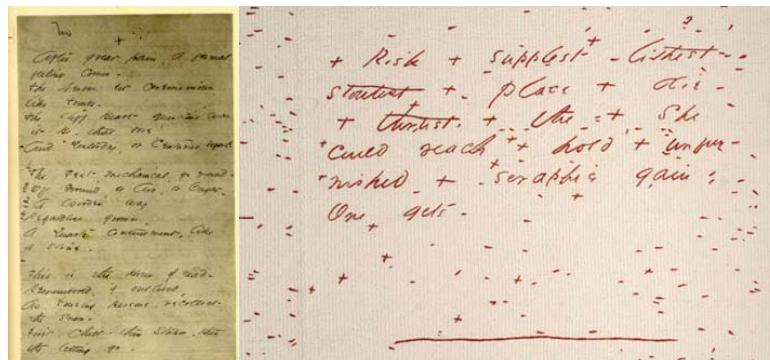 After great pain, a formal
feeling comes -
The Nerves sit ceremonious
like Tombs -
The stiff Heart questions was
it He, that bore,
And Yesterday, or Centuries before
The Feet, mechanical, go round -
Of Ground, or Air, or Ought -
A Wooden way
Regardless grown,
A Quartz contentment, like
a stone -
This is the Hour of Lead -
Remembered, if outlived,
As Freezing persons, recollect
the Snow -
First - Chill - then Stupor - then
the letting go -
+ Risk + supplest + lithest -
stoutest + place + die -
+ thrust + the + she
could reach + hold + unfur-
nished + seraphic gain -
One gets -